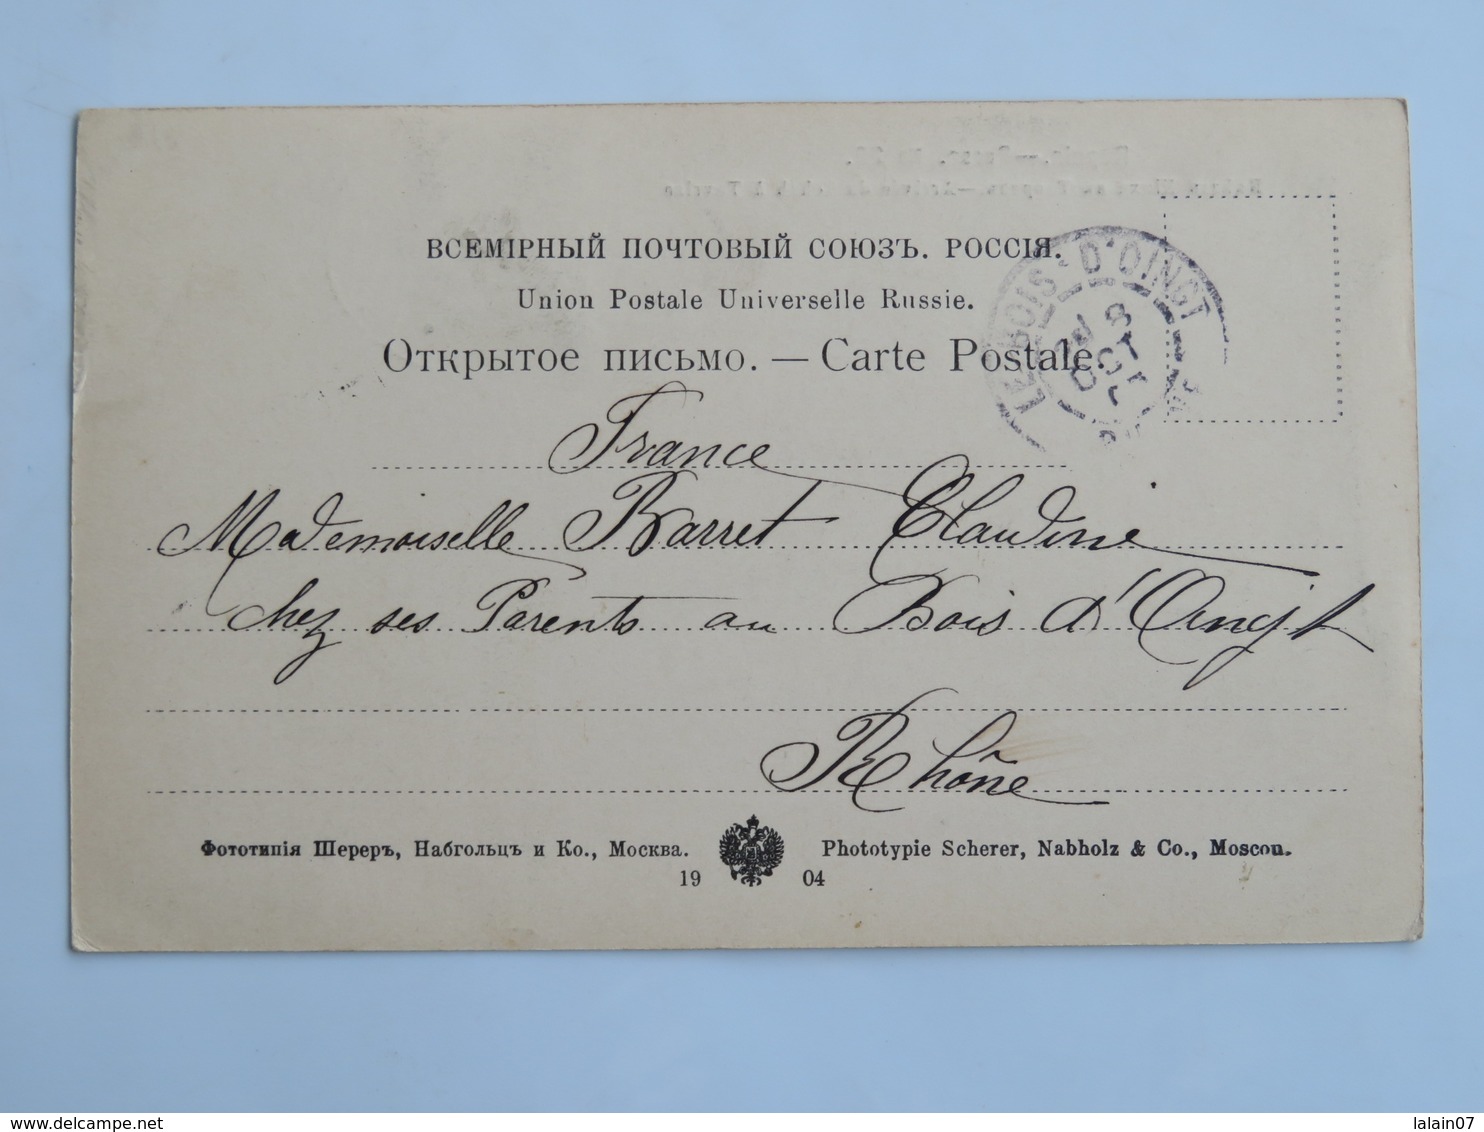 ВСЕМІРНЫЙ ПОЧТОВЫЙ СОЮЗЪ. РОССІЯ.
Union Postale Universelle Russie.
Открытое письмо. — Carte Postale.
LE BOIS D'OINGT
8
OCT
France
Mademoiselle Barret Claudine
chez ses Parents au Bois d'Oingt
Rhône
Фототипія Шереръ, Набгольцъ и Ко., Москва.
Phototypie Scherer, Nabholz & Co., Moscou.
19 04
delcampe.net
lalain07